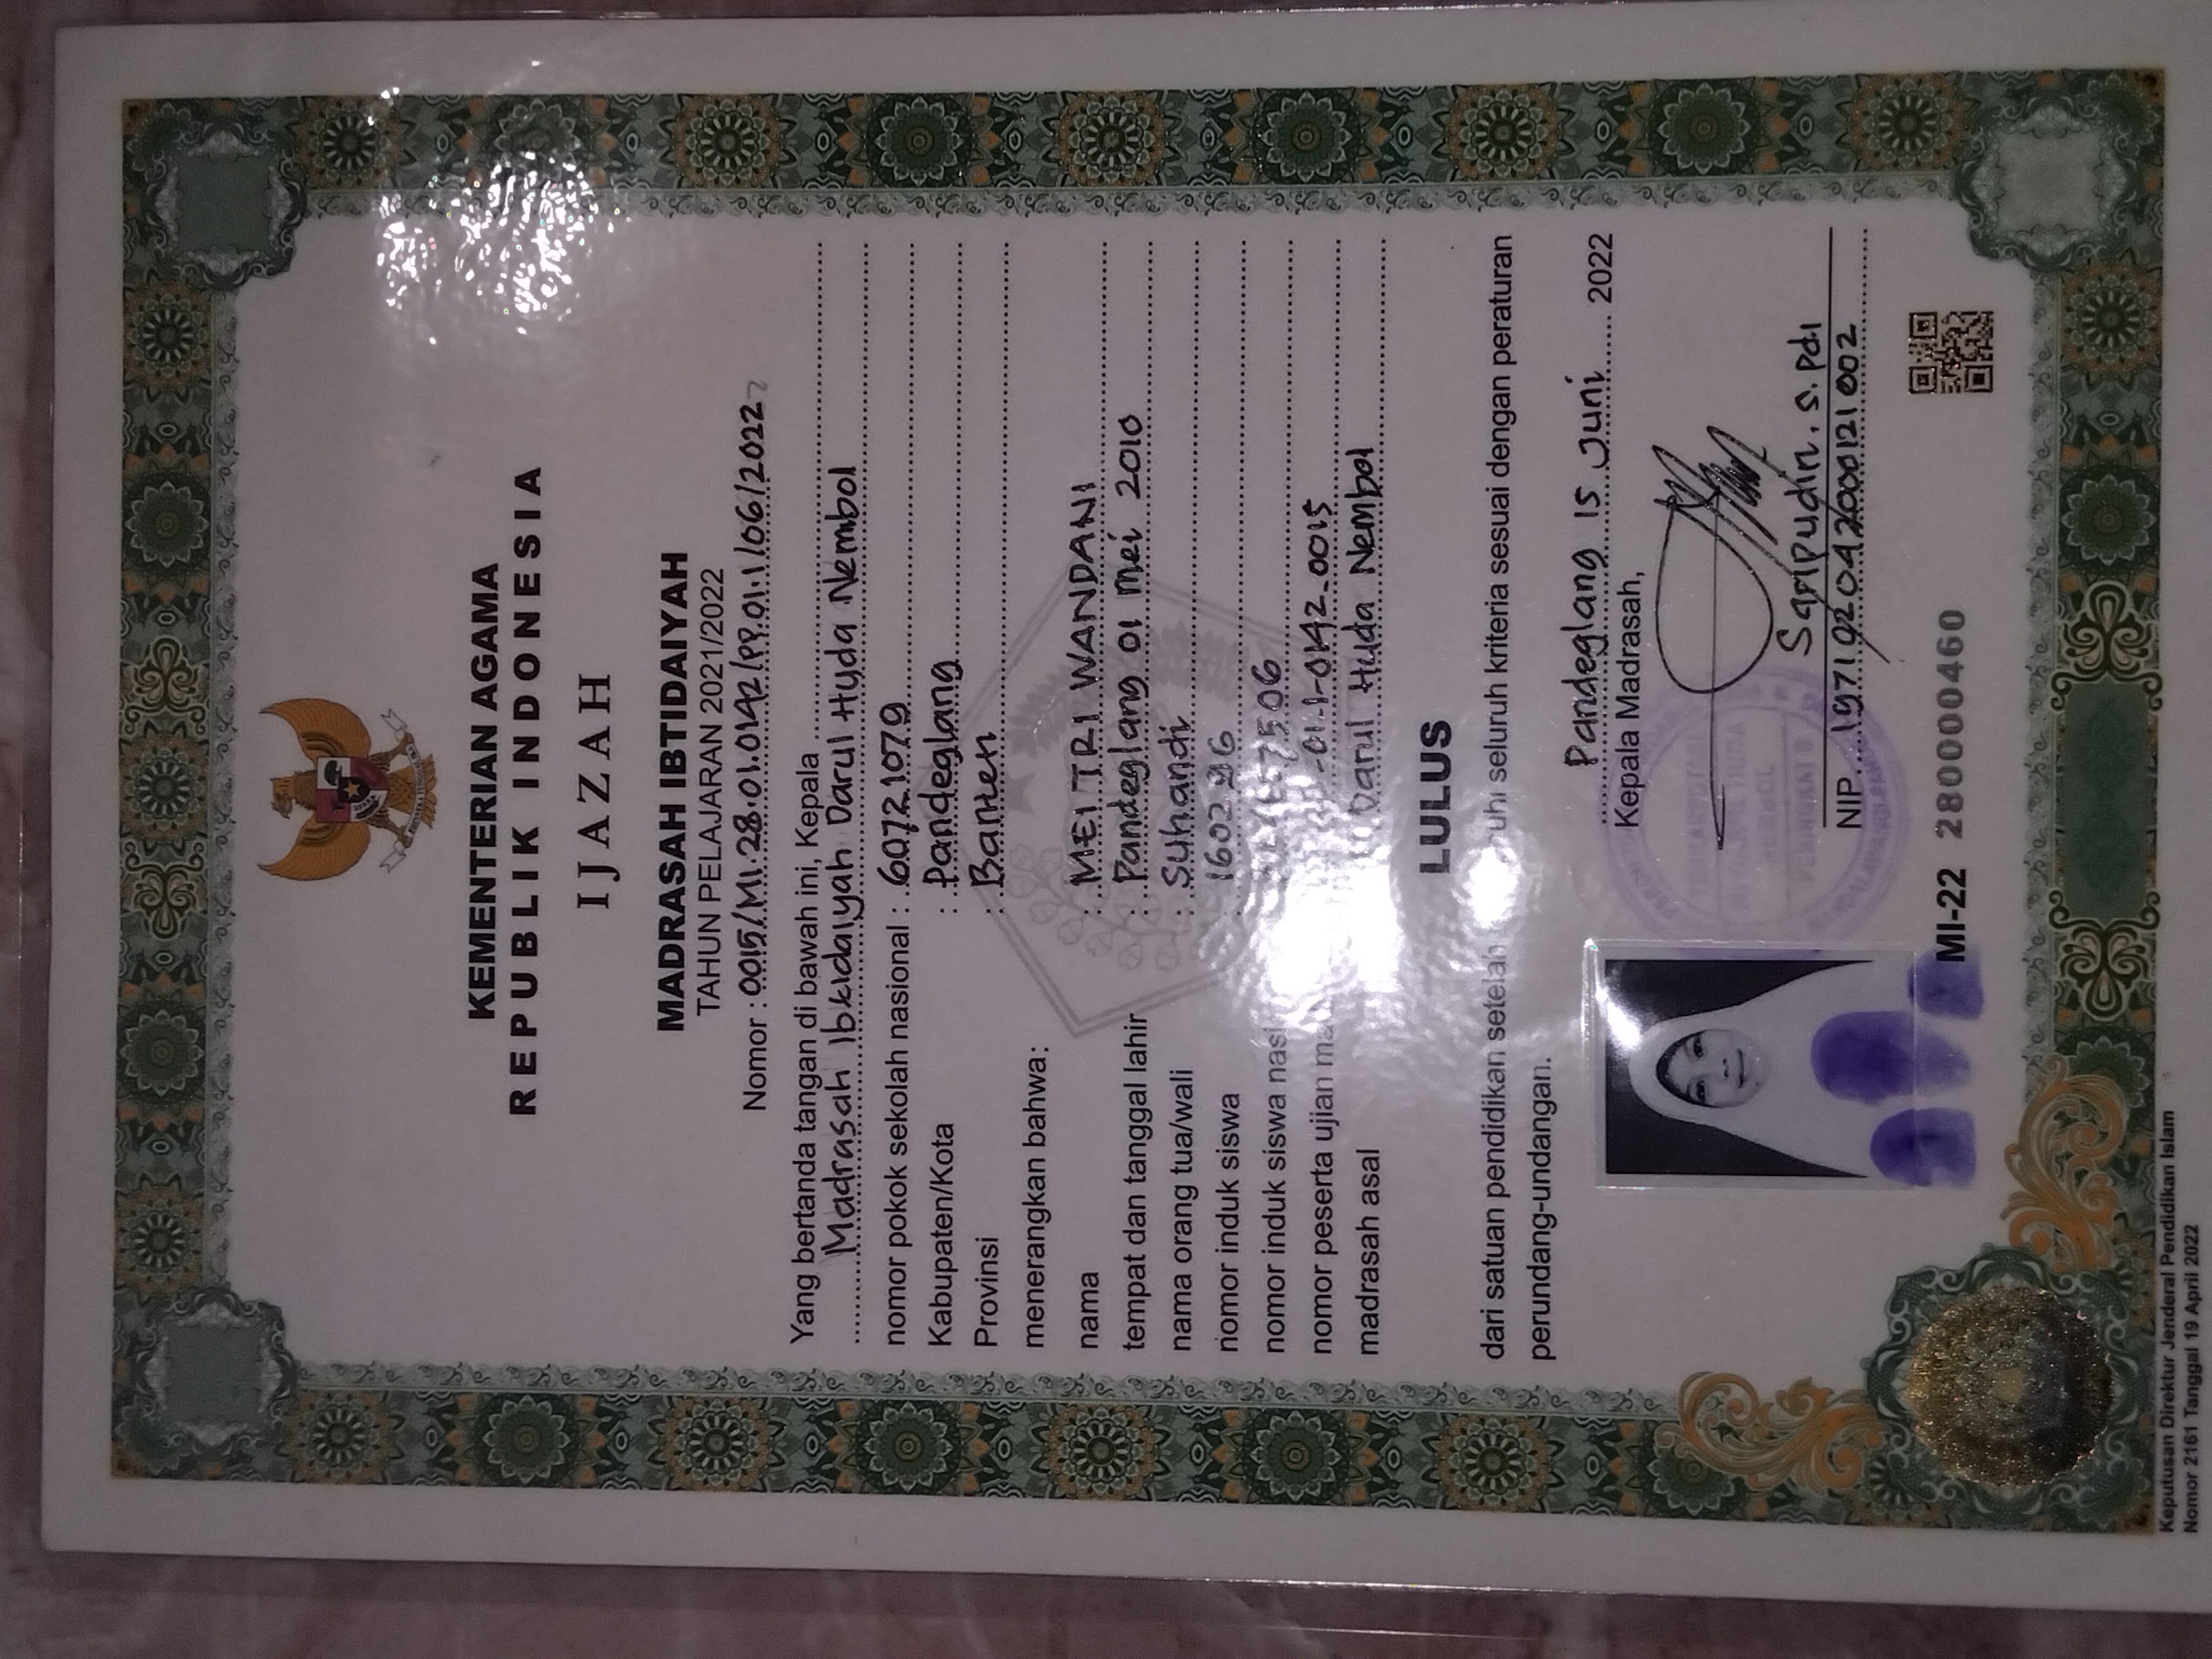 KEMENTERIAN AGAMA
REPUBLIK INDONESIA
IJAZAH
MADRASAH IBTIDAIYAH
TAHUN PELAJARAN 2021/2022
Nomor : 0015/MI.28.01.0142/PP.01.1/06/2022
Yang bertanda tangan di bawah ini, Kepala
Madrasah Ibtidaiyah Darul Huda Nembol
nomor pokok sekolah nasional : 60721079
Kabupaten/Kota : Pandeglang
Provinsi : Banten
menerangkan bahwa:
nama : MEI TRI WANDANI
tempat dan tanggal lahir : Pandeglang 01 Mei 2010
nama orang tua/wali : Suhandi
nomor induk siswa
nomor induk siswa
nomor peserta ujian
madrasah asal Darul Huda Nembol
LULUS
dari satuan pendidikan setelah seluruh kriteria sesuai dengan peraturan
perundang-undangan.
Pandeglang 15 Juni 2022
Kepala Madrasah,
Saripudin. S.Pd.I
NIP. 197102042000121002
MI-22 280000460
Keputusan Direktur Jenderal Pendidikan Islam
Nomor 2161 Tanggal 19 April 2022